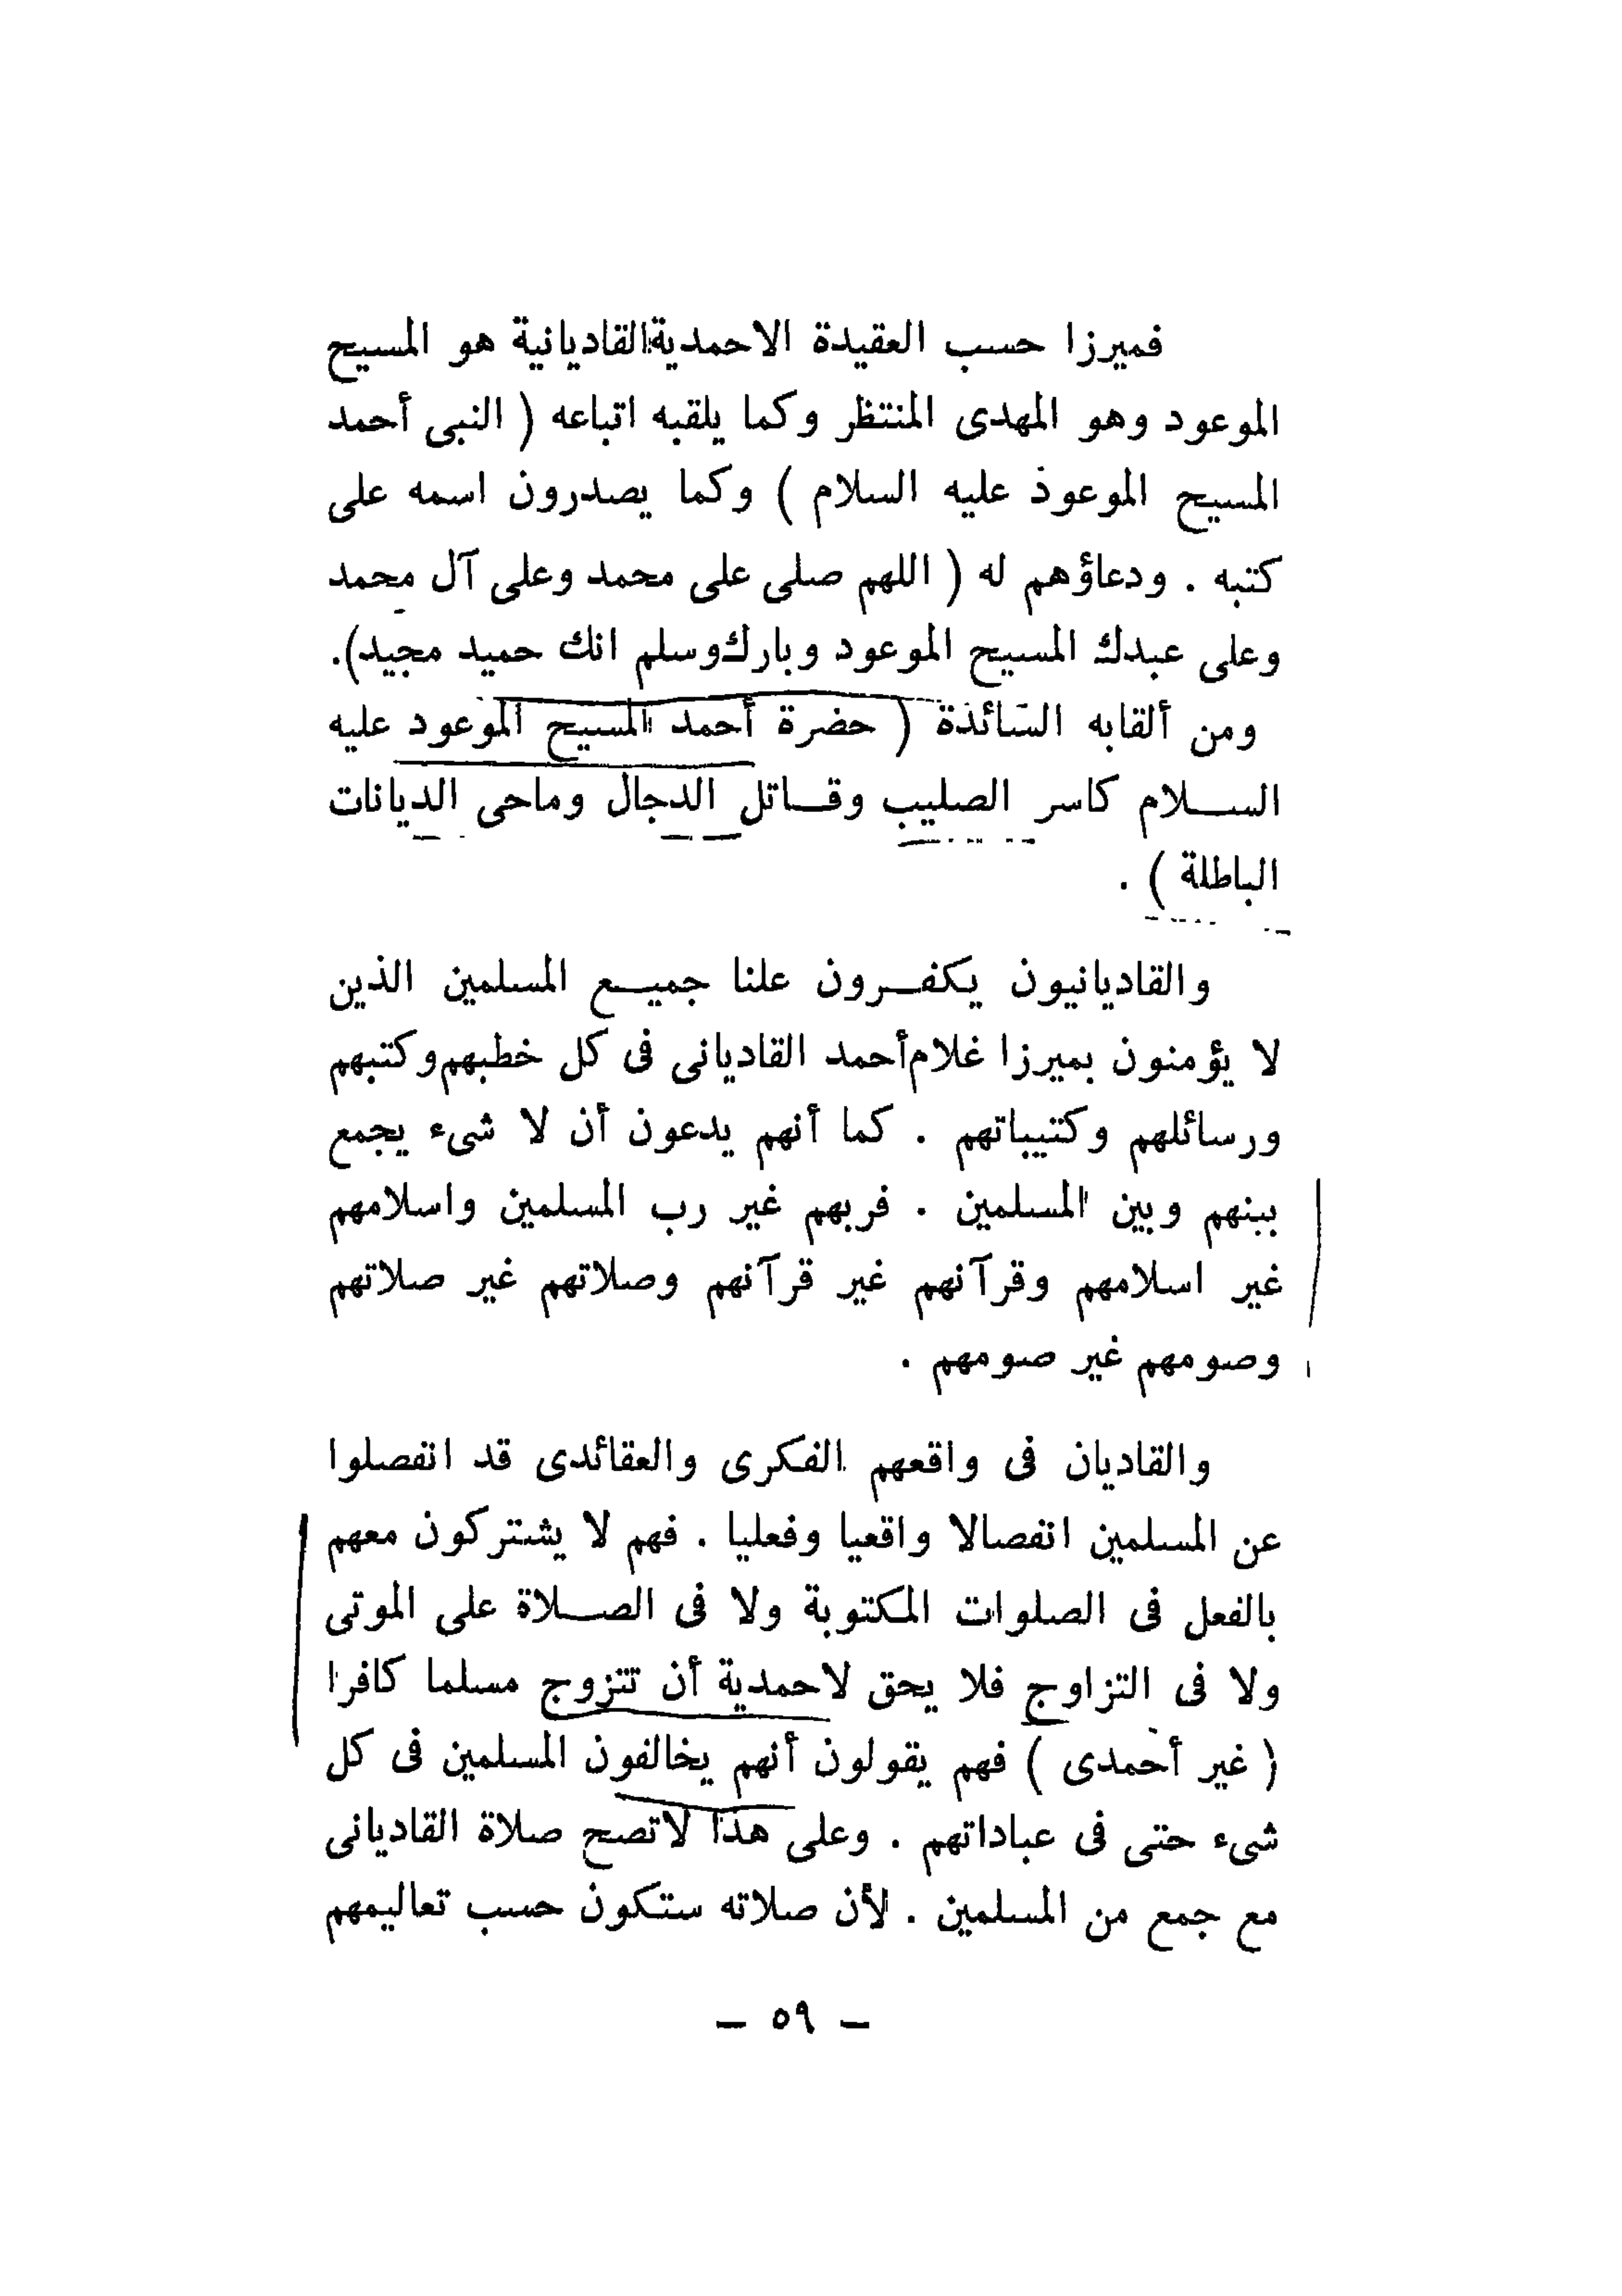 فميرزا حسب العقيدة الاحمدية القاديانية هو المسيح
الموعود وهو المهدى المنتظر وكما يلقبه اتباعه ( النبى أحمد
المسيح الموعود عليه السلام ) وكما يصدرون اسمه على
كتبه . ودعاؤهم له ( اللهم صلى على محمد وعلى آل محمد
وعلى عبدك المسيح الموعود وبارك وسلم انك حميد مجيد).
ومن ألقابه السائدة ( حضرة أحمد المسيح الموعود عليه
الســلام كاسر الصليب وقــاتل الدجال وماحى الديانات
الباطلة ) .
والقاديانيون يكفــرون علنا جميــع المسلمين الذين
لا يؤمنون بميرزا غلام أحمد القاديانى فى كل خطبهم وكتبهم
ورسائلهم وكتيباتهم . كما أنهم يدعون أن لا شىء يجمع
بينهم وبين المسلمين . فربهم غير رب المسلمين واسلامهم
غير اسلامهم وقرآنهم غير قرآنهم وصلاتهم غير صلاتهم
وصومهم غير صومهم .
والقاديان فى واقعهم الفكرى والعقائدى قد انفصلوا
عن المسلمين انفصالا واقعيا وفعليا . فهم لا يشتركون معهم
بالفعل فى الصلوات المكتوبة ولا فى الصــلاة على الموتى
ولا فى التزاوج فلا يحق لاحمدية أن تتزوج مسلما كافرا
( غير أحمدى ) فهم يقولون أنهم يخالفون المسلمين فى كل
شىء حتى فى عباداتهم . وعلى هذا لاتصح صلاة القاديانى
مع جمع من المسلمين . لأن صلاته ستكون حسب تعاليمهم
— ٥٩ —